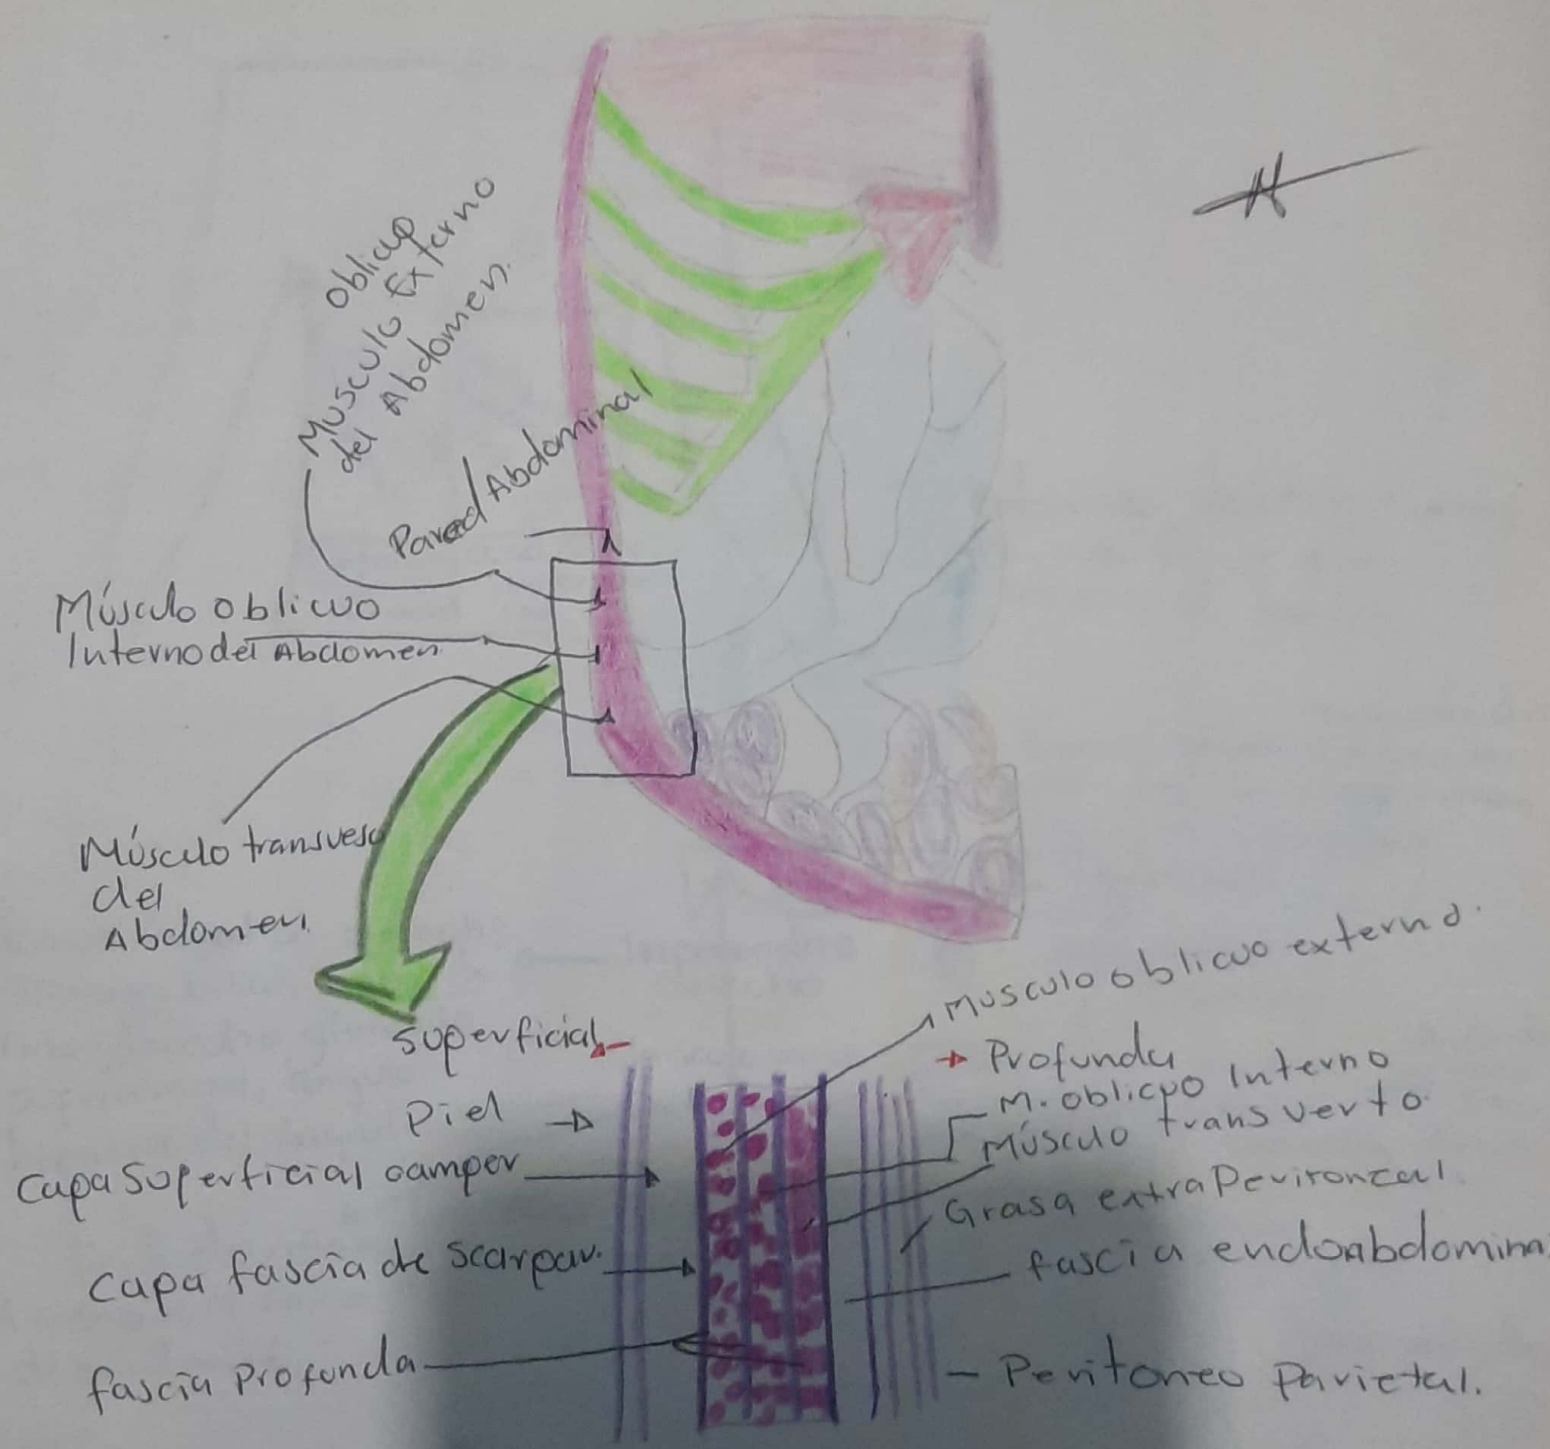 oblicuo
Musculo Externo
del Abdomen.
Pared Abdominal
Músculo oblicuo
Interno del Abdomen
Músculo transveso
del
Abdomen
superficial
Piel
Capa Superficial camper
Capa fascia de scarpar.
fascia Profunda
Musculo oblicuo externo.
Profunda
M. oblicuo Interno
Músculo transverto
Grasa extraperironeal
fascia endoabdomina
Peritoneo Parietal.